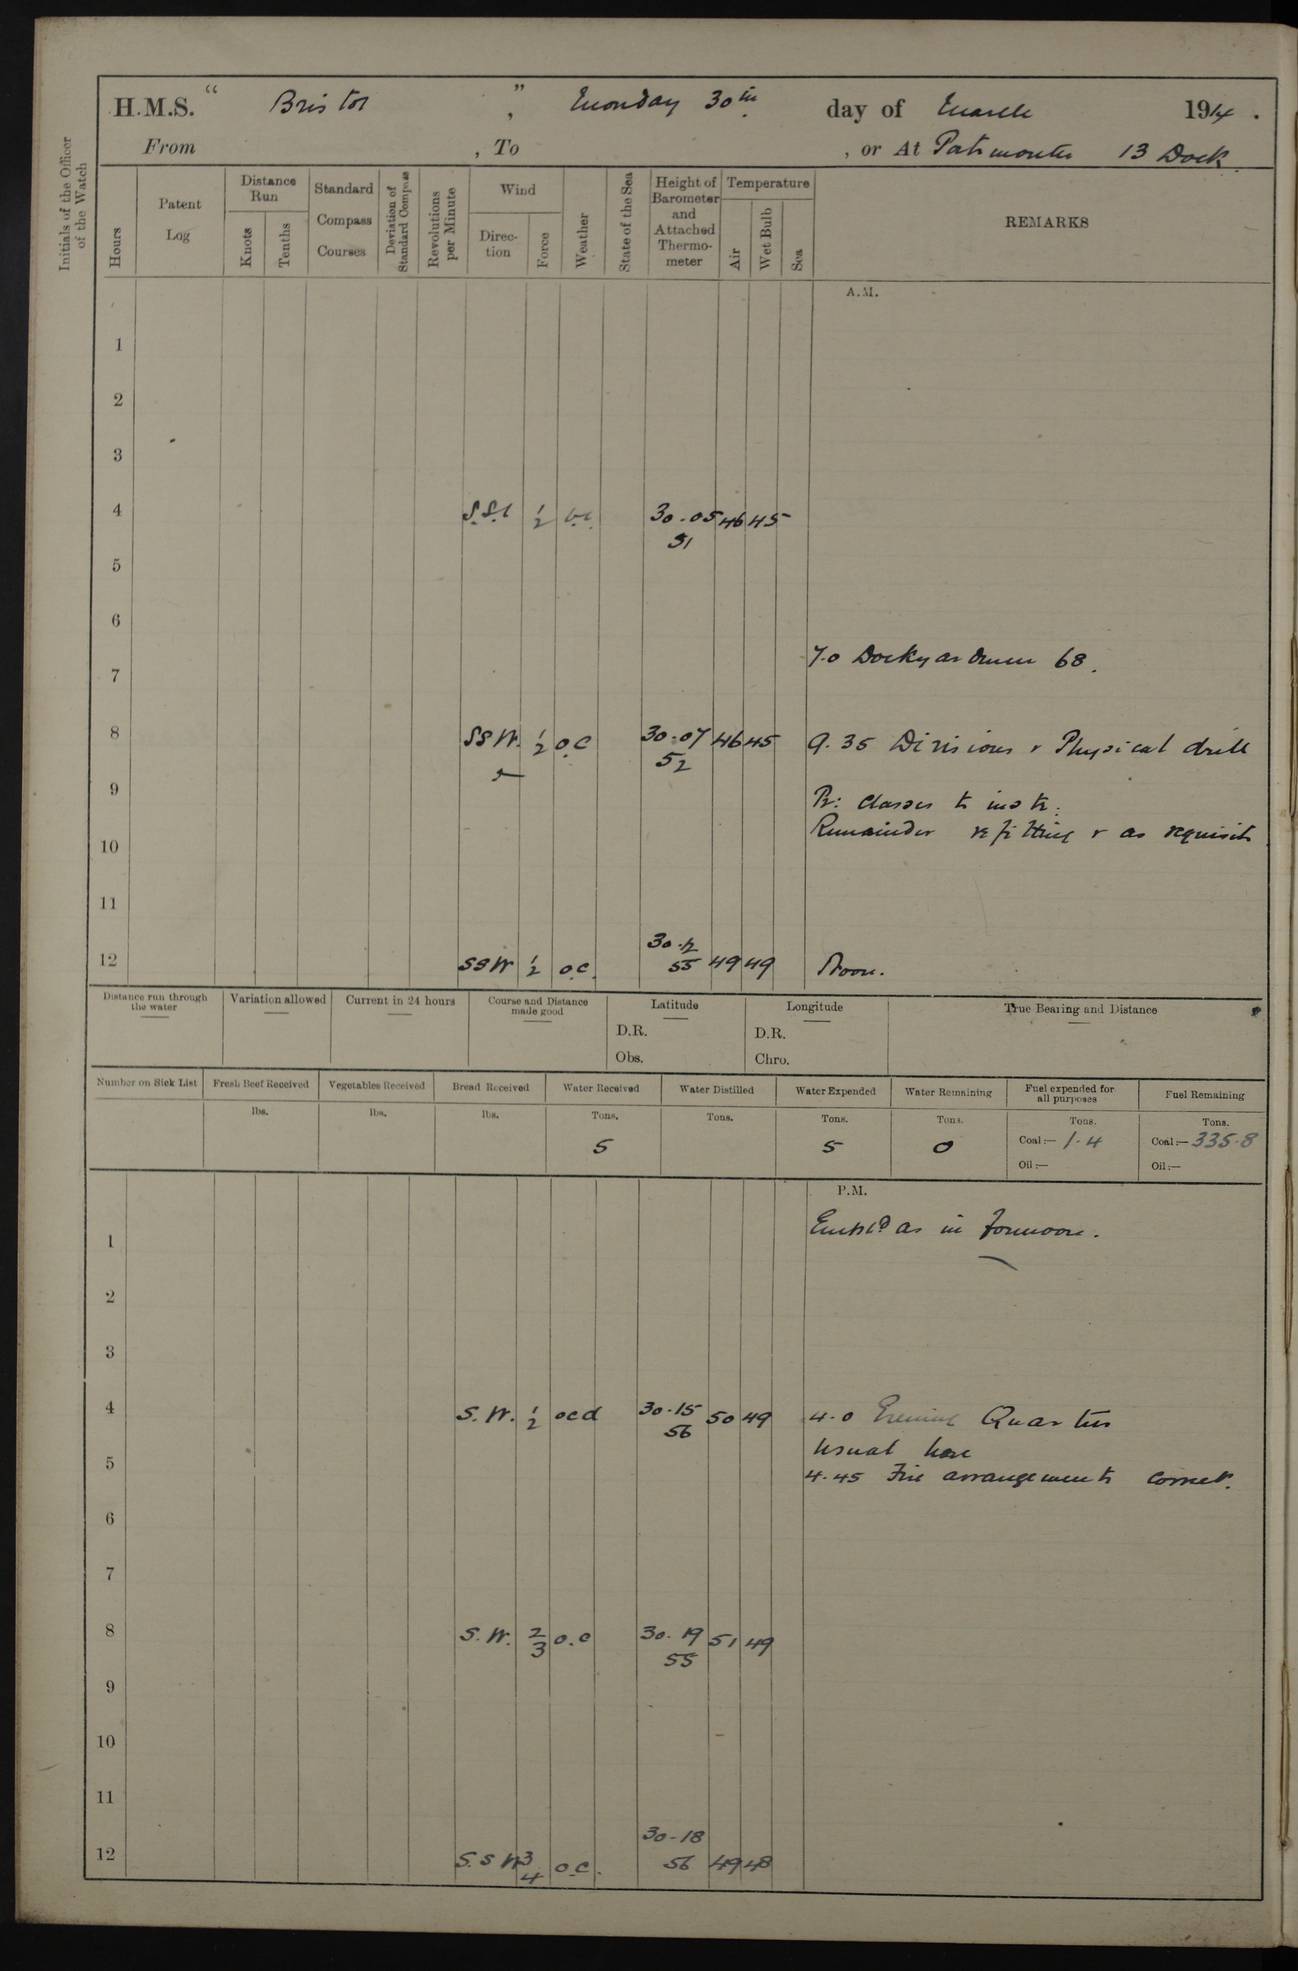 H.M.S. " Bristol " , Monday 30th day of March 1914 .
From , To , or At Portsmouth 13 Dock
Initials of the Officer of the Watch
Hours
Patent Log
Distance Run
Knots
Tenths
Standard Compass Courses
Deviation of Standard Compass
Revolutions per Minute
Wind
Direction
Force
Weather
State of the Sea
Height of Barometer and Attached Thermometer
Temperature
Air
Wet Bulb
Sea
REMARKS
A.M.
1
2
3
4 1/2 30.05 46 45
51
5
6
7.0 Dockyardmen 68.
7
8 SSW. 1/2 o.c 30.07 46 45 9.35 Divisions & Physical drill
52
9 classes to instr:
Remainder refitting & as requisite
10
11
30.12
12 SSW 1/2 o.c. 55 49 49 Noon.
Distance run through the water
Variation allowed
Current in 24 hours
Course and Distance made good
Latitude
D.R.
Obs.
Longitude
D.R.
Chro.
True Bearing and Distance
Number on Sick List
Fresh Beef Received
lbs.
Vegetables Received
lbs.
Bread Received
lbs.
Water Received
Tons.
5
Water Distilled
Tons.
Water Expended
Tons.
5
Water Remaining
Tons.
0
Fuel expended for all purposes
Tons.
Coal:— 1.4
Oil:—
Fuel Remaining
Tons.
Coal:— 335.8
Oil:—
P.M.
Empld as in forenoon.
1
2
3
4 S.W. 1/2 ocd 30.15 50 49 4.0 Evening Quarters
56
usual leave
5 4.45 Fire arrangements correct.
6
7
8 S.W. 2/3 o.c 30.19 51 49
55
9
10
11
30.18
12 S.S.W 3/4 o.c. 56 49 48